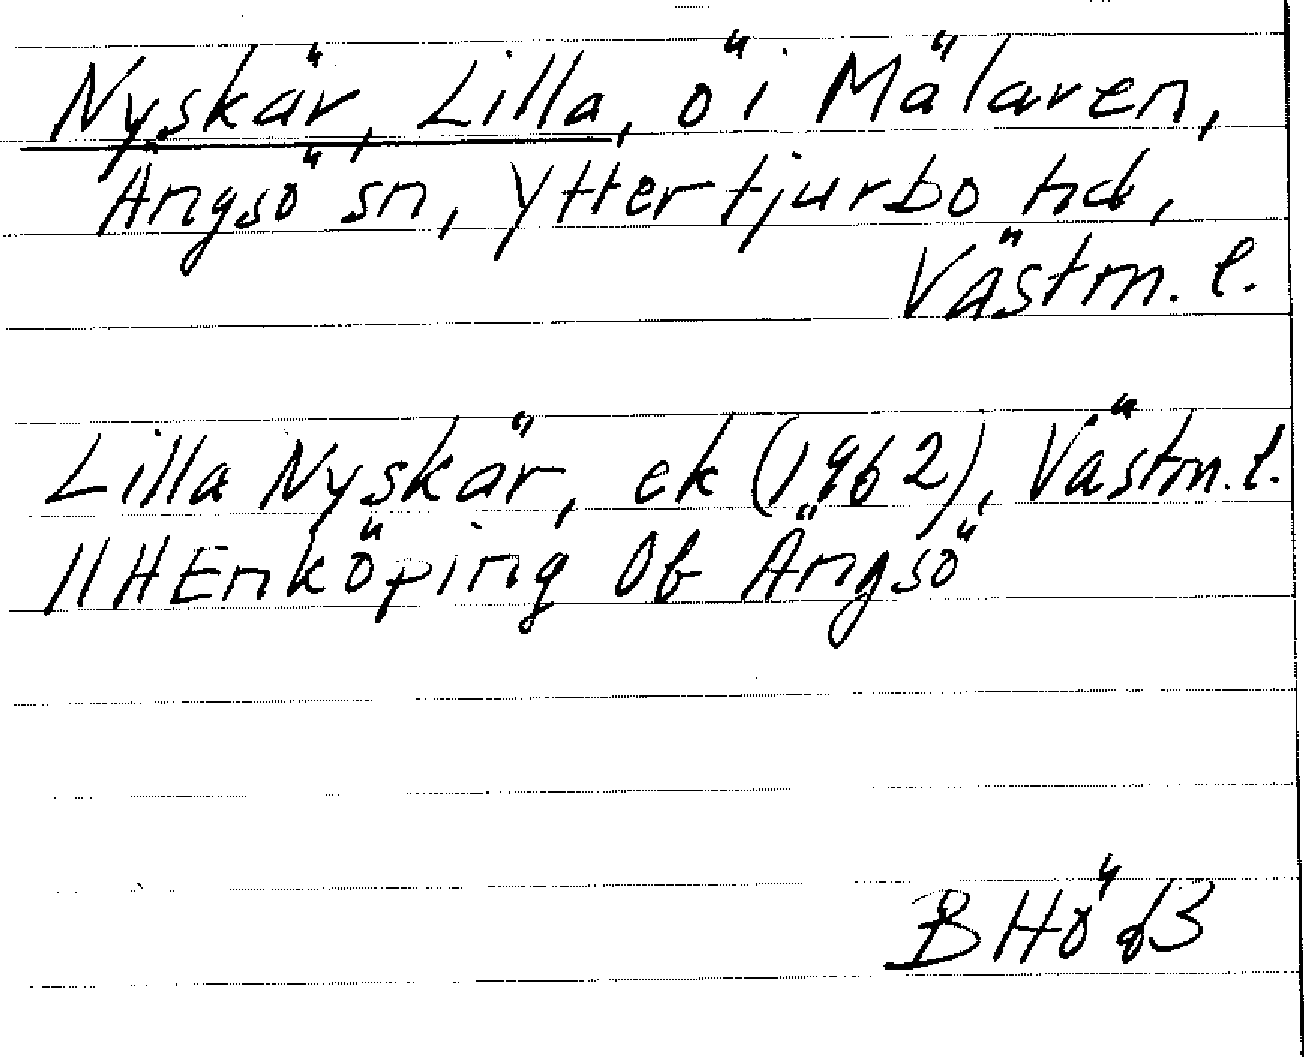 Nyskär, Lilla, ö i Mälaren,
Ängsö sn, Yttertjurbo hd,
Västm. l.
Lilla Nyskär, ek (1962), Västm. l.
11H Enköping 0b Ängsö
BHö 83